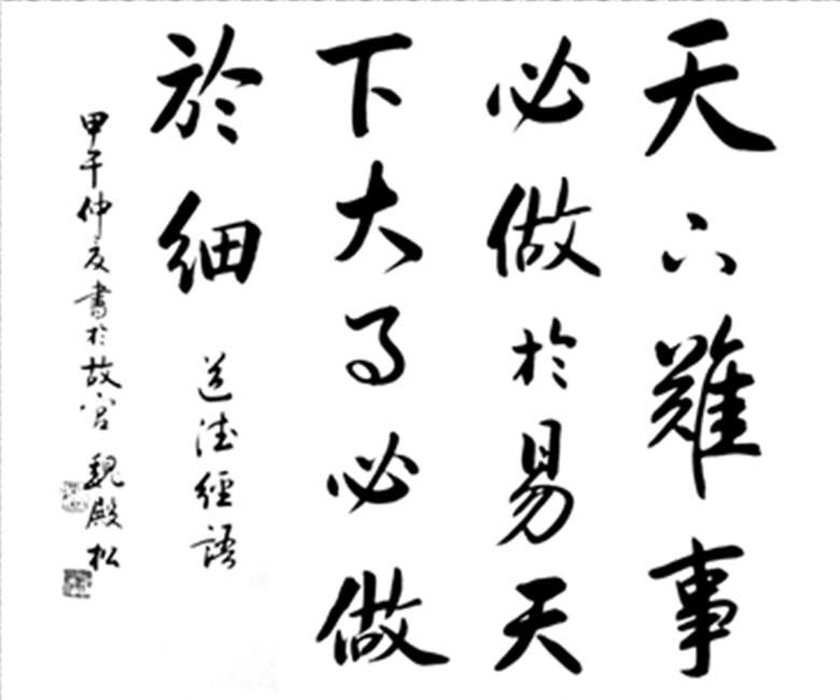 天下難事
必做於易天
下大事必做
於細
道德經語
甲午仲夏書於故宮魏殿松